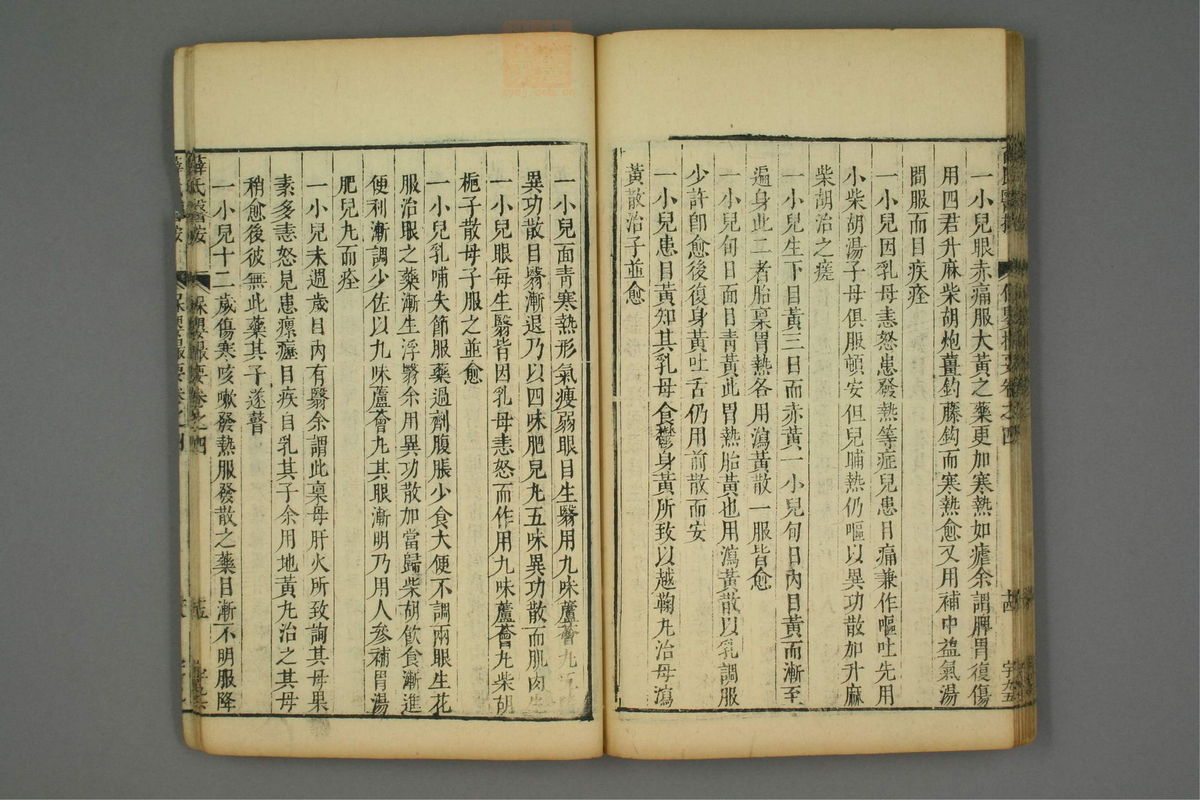 一小兒眼赤痛服大黃之藥更加寒熱如瘧余謂脾胃復傷
用四君升麻柴胡炮薑鈎藤鈎而寒熱愈又用補中益氣湯
間服而目疾痊
一小兒因乳母恚怒患發熱等症兒患目痛兼作嘔吐先用
小柴胡湯子母俱服頓安但兒晡熱仍嘔以異功散加升麻
柴胡治之瘥
一小兒生下目黃三日而赤黃一小兒旬日內目黃而漸至
遍身此二者胎稟胃熱各用瀉黃散一服皆愈
一小兒旬日面目青黃此胃熱胎黃也用瀉黃散以乳調服
少許卽愈後復身黃吐舌仍用前散而安
一小兒患目黃知其乳母食鬱身黃所致以越鞠丸治母瀉
黃散治子並愈
一小兒面青寒熱形氣瘦弱眼目生翳用九味蘆薈丸五
異功散目翳漸退乃以四味肥兒丸五味異功散而肌肉生
一小兒眼每生翳皆因乳母恚怒而作用九味蘆薈丸柴胡
梔子散母子服之並愈
一小兒乳哺失節服藥過劑腹脹少食大便不調兩眼生花
服治眼之藥漸生浮翳余用異功散加當歸柴胡飲食漸進
便利漸調少佐以九味蘆薈丸其眼漸明乃用人參補胃湯
肥兒丸而痊
一小兒未週歲目內有翳余謂此稟母肝火所致詢其母果
素多恚怒見患瘰癧目疾自乳其子余用地黃丸治之其母
稍愈後彼無此藥其子遂瞽
一小兒十二歲傷寒咳嗽發熱服發散之藥目漸不明服降
薛氏醫按
保嬰撮要卷之四